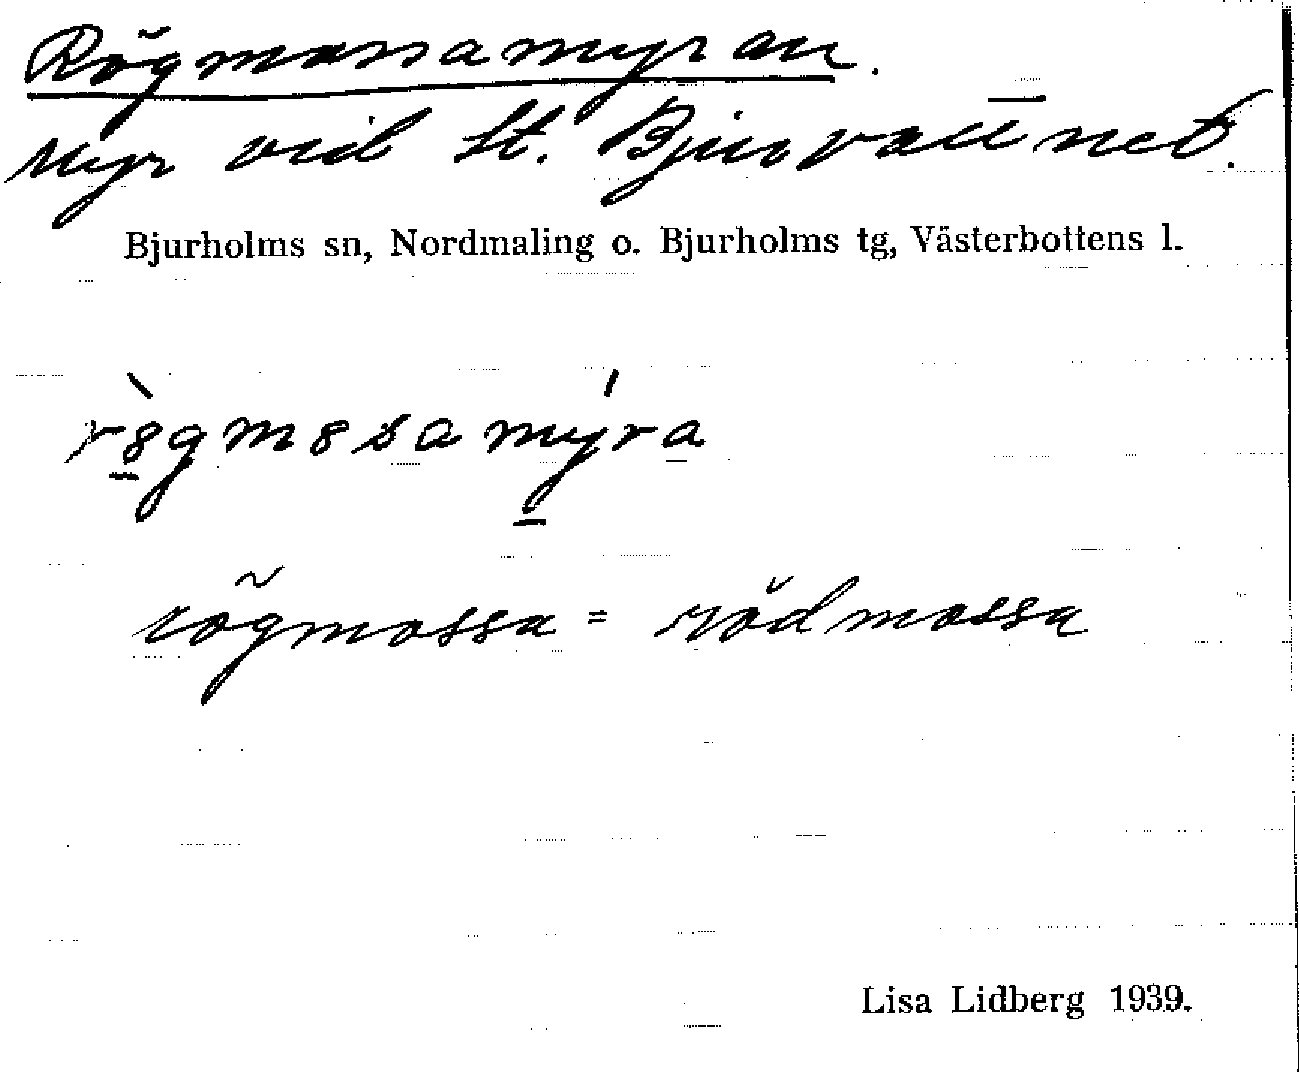 Rögmossamyran.
Myr vid St. Bjurvattnet.
Bjurholms sn, Nordmaling o. Bjurholms tg, Västerbottens l.
rögmossa = rödmossa
Lisa Lidberg 1939.